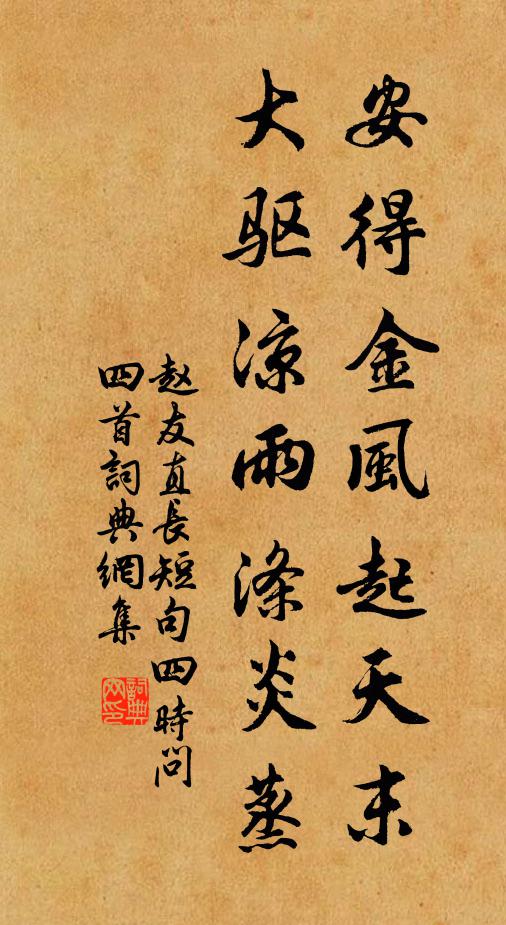 安得金風起天末
大驱凉雨涤炎蒸
赵友直長短句四時問
四首詞典網集
詞典
网印